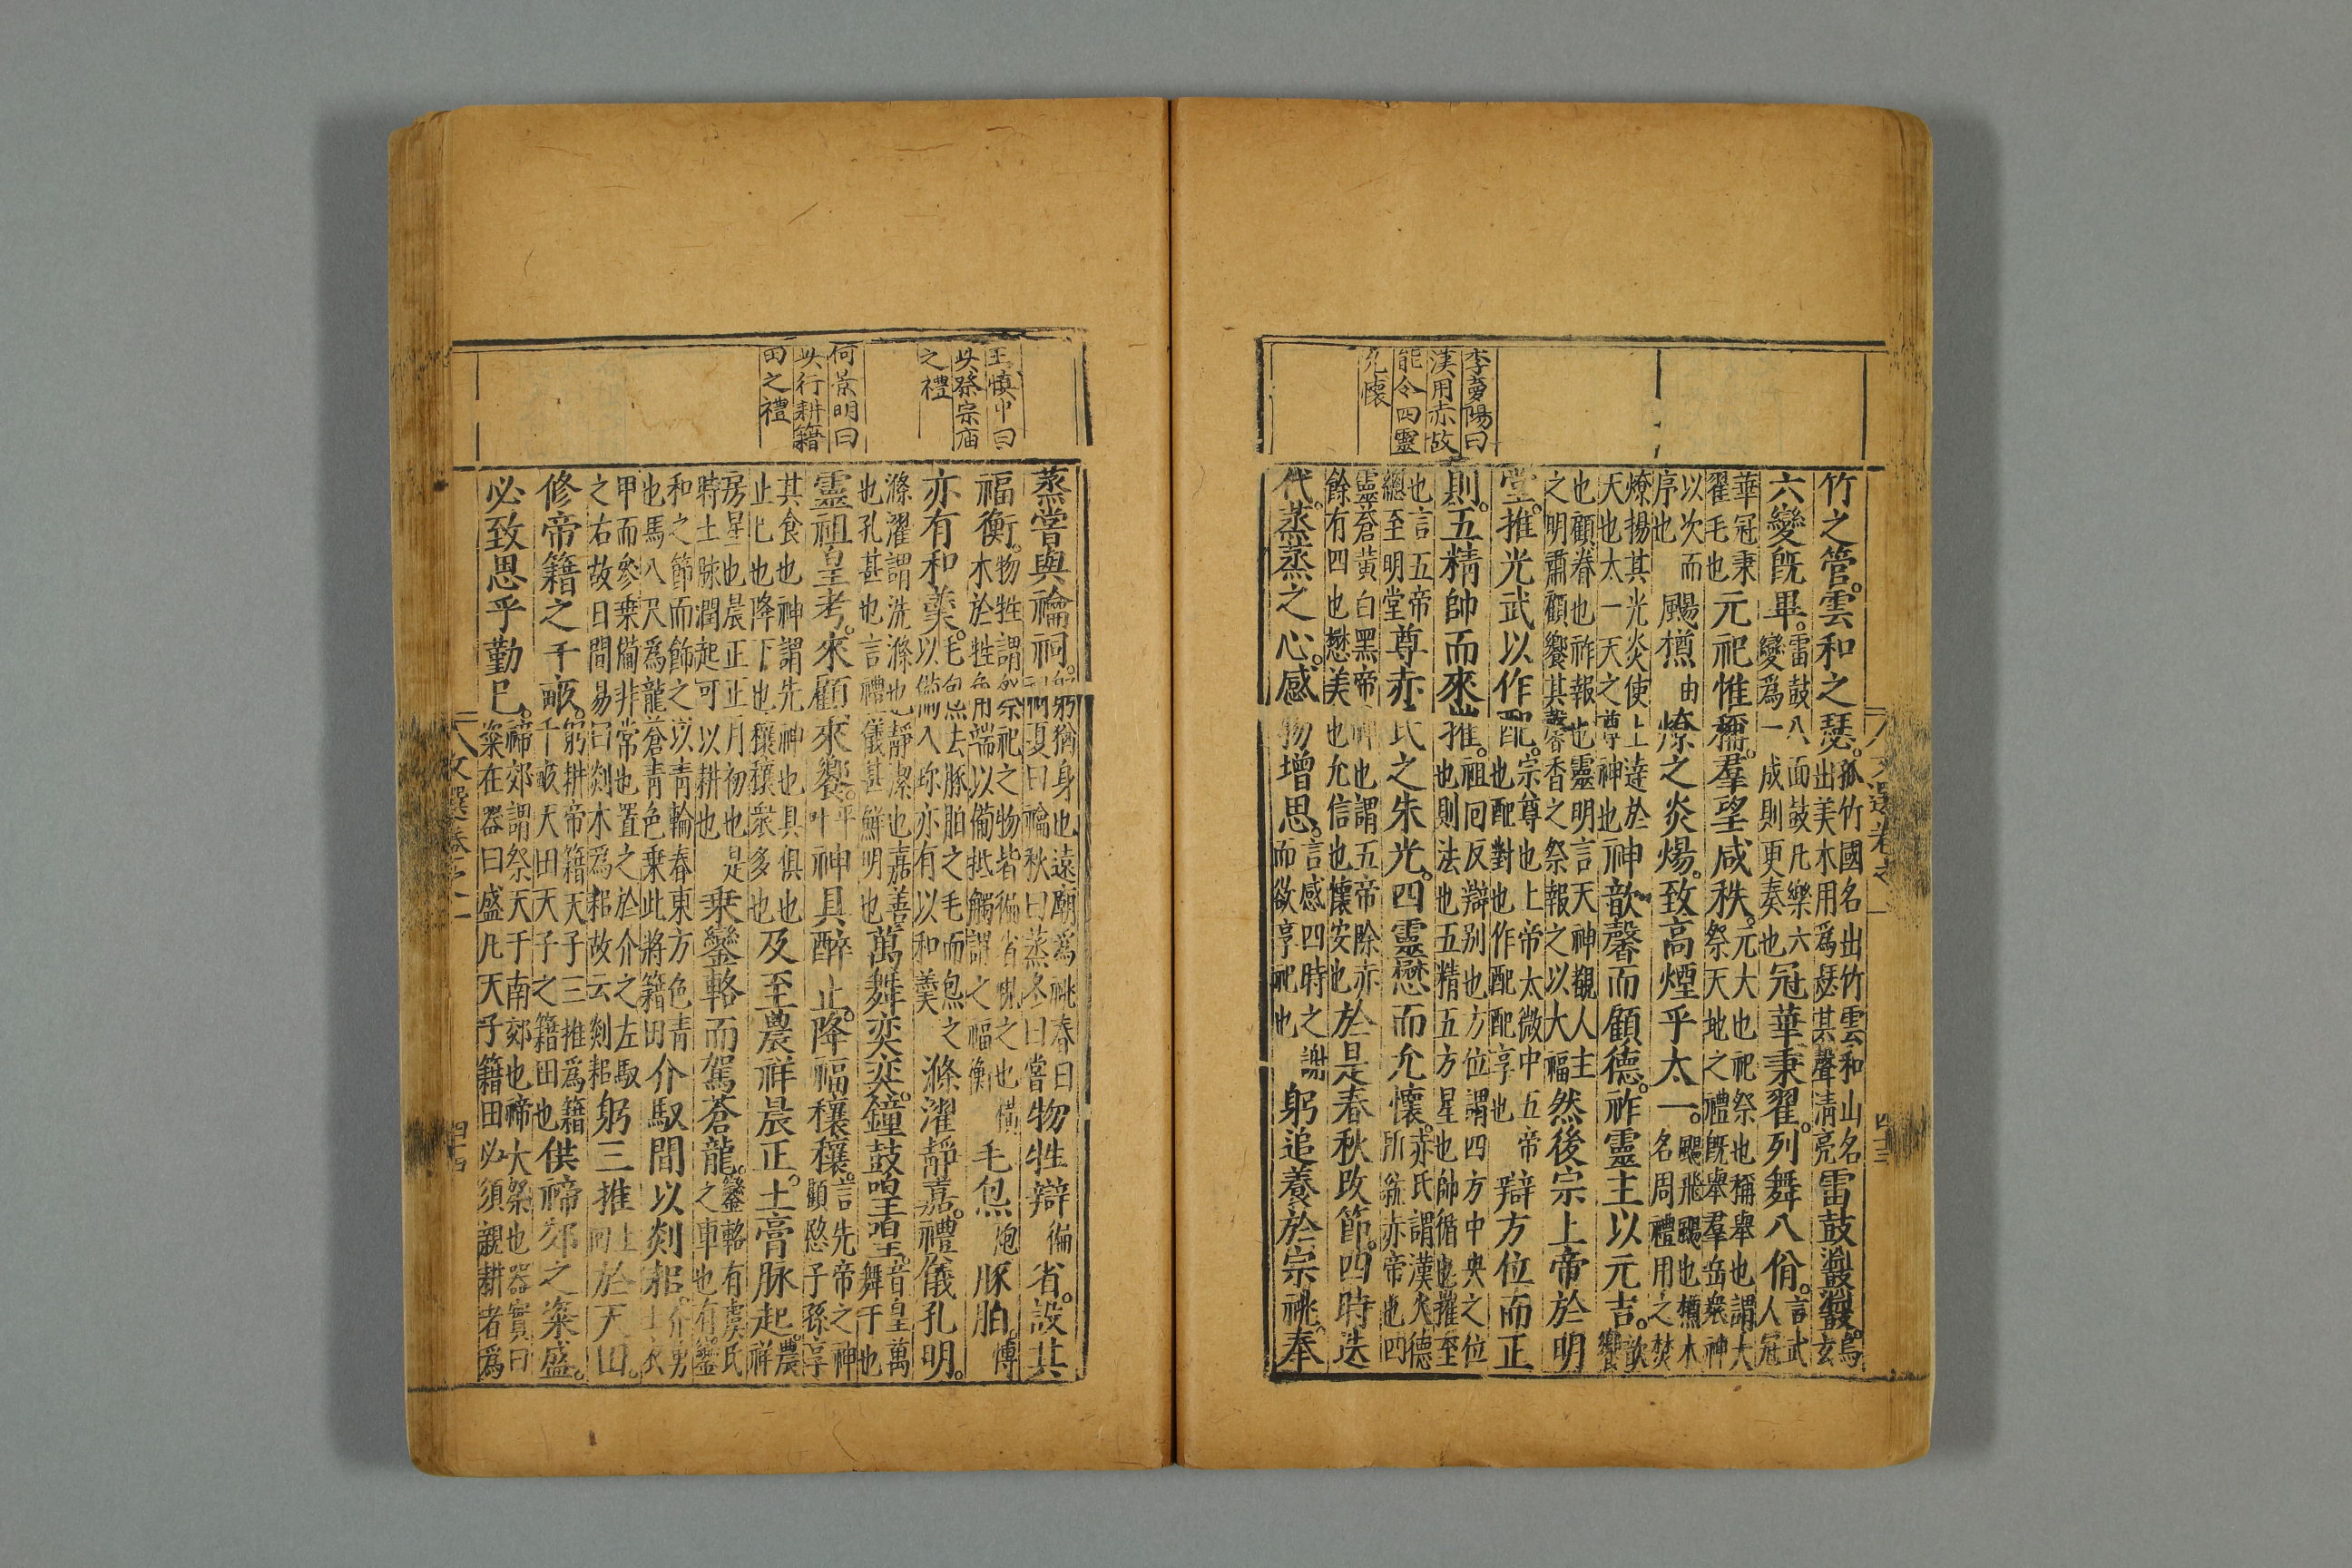 李夢陽曰
漢用赤故
能令四靈
允懷
竹之管。雲和之瑟。孤竹國名出竹雲和山名出美木用爲瑟其聲清亮雷鼓鼝鼝。烏玄
六變旣畢。雷鼓八面鼓凡樂六變爲一成則更奏也冠華秉翟。列舞八佾。言武人冠
華冠秉翟毛也元祀惟稱。羣望咸秩。元大也祀祭也稱舉也謂大祭天地之禮旣舉羣岳衆神
以次而序也颺槱由燎之炎煬。致高煙乎太一。颺飛颺也槱木名周禮用之焚
燎揚其光炎使上達於天也太一天之尊神也神歆馨而顧德。祚靈主以元吉。歆饗
也顧眷也祚報也靈明言天神觀人主之明肅顧饗其馨香之祭報之以大福然後宗上帝於明
堂。推光武以作配。宗尊也上帝太微中五帝也配對也作配配享也辯方位而正
則。五精帥而來摧。祖回反辯别也方位謂四方中央之位也則法也五精五方星也帥循也摧至
也言五帝總至明堂尊赤氏之朱光。四靈懋而允懷。赤氏謂漢火德所爲赤帝也四
靈蒼黄白黑帝神也謂五帝除亦餘有四也懋美也允信也懷安也於是春秋改節。四時迭
代。蒸蒸之心。感物增思。言感四時之謝而欲享祀也躬追養於宗祧。奉
王慎中曰
此祭宗庙
之禮
何景明曰
此行耕籍
田之禮
蒸嘗與禴祠。躬猶身也遠廟爲祧春曰祠夏曰禴秋曰蒸冬曰嘗物牲辯徧省。設其
福衡。物牲謂祭祀之物皆徧省視之也橫木於牲角用端以備抵觸謂之福衡毛炰炮豚胉。愽
亦有和羹。毛炰去豚胉之毛而炰之以備入珎亦有以和羹滌濯靜嘉。禮儀孔明。
滌濯謂洗滌也靜潔也嘉善也孔甚也言禮儀甚鮮明也萬舞奕奕。鐘鼓喤喤。音皇萬舞干也
靈祖皇考。來顧來饗。平叶神具醉止。降福穰穰。言先帝之神顧愍子孫享
其食也神謂先神也具俱也止已也降下也穰穰衆多也及至農祥晨正。土膏脉起。農祥
房星也晨正正月初也是時土脉潤起可以耕也乗鑾輅而駕蒼龍。鑾輅有虞氏之車也有鑾
和之節而飾之以青輪春東方色青也馬八尺爲龍蒼青色乗此將籍田介馭間以剡耜。介勇士衣
甲而參乗備非常也置之於介之左馭之右故曰間易曰剡木爲耜故云剡耜躬三推上囘於天田。
修帝籍之千畝。躬耕帝籍天子三推爲籍千畝天田天子之籍田也供禘郊之粢盛。
必致思乎勤己。禘郊謂祭天于南郊也禘大祭也器實曰粢在器曰盛凡天子籍田必須親耕者爲
文選卷之二
四十四